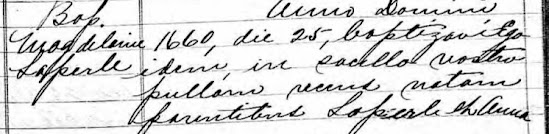 Bap. Anno Domini
Magdelaine 1660, die 25, baptizavi Ego
Laperle idem, in sacello nostro
pullam recens natam
parentibus Laperle et Anna